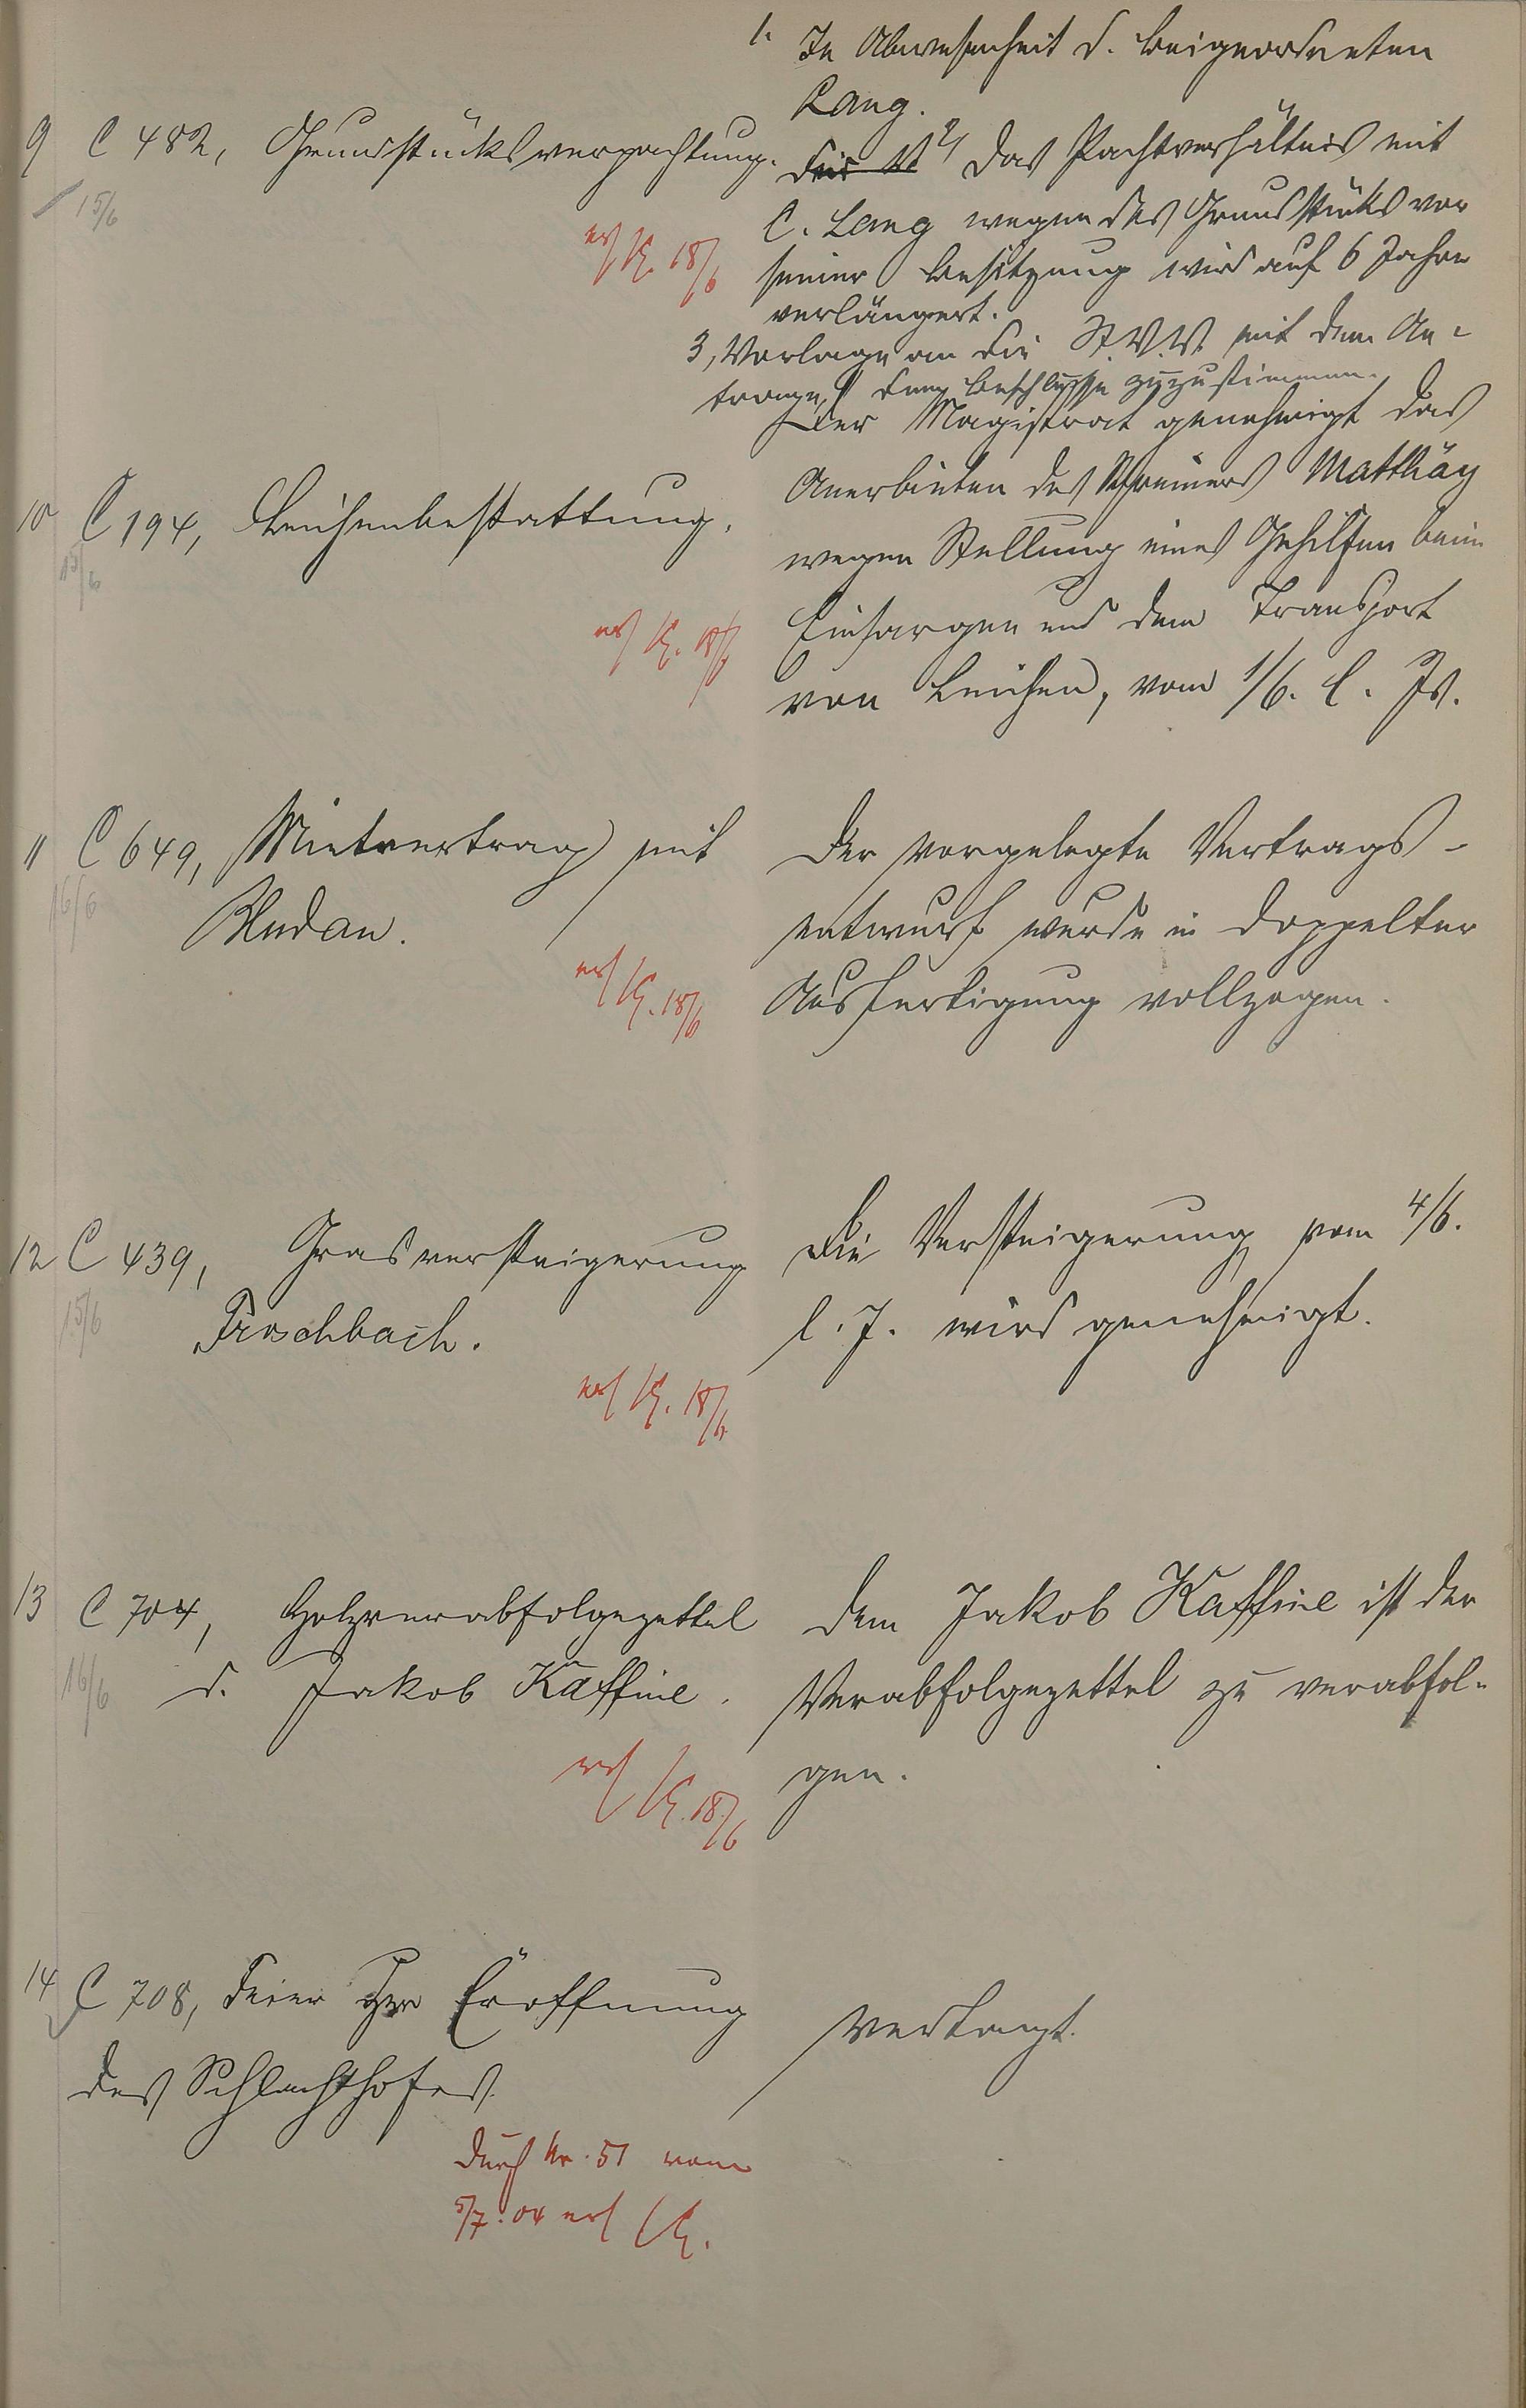 1. In Abwesenheit d. Beigeordneten
Lang.
9 C 482, Grundstücksverpachtung.
15/6
2) Das Pachtverhältnis mit
C. Lang wegen des Grundstücks vor
seiner Besitzung wird auf 6 Jahre
verlängert.
erl 18/6
3, Vorlage an die St.V.V. mit dem An-
trage, dem Beschlusse zuzustimmen.
10 C 194, Leichenbestattung.
15/6
Der Magistrat genehmigt das
Anerbieten des Schreiners Matthäy
wegen Stellung eines Gehilfen beim
Einsargen und dem Transport
von Leichen, vom 1/6. l. Js.
erl 18/6
11 C 649, Mietvertrag mit
Rudan.
16/6
Der vorgelegte Vertrags-
entwurf wurde in doppelter
Ausfertigung vollzogen.
erl 18/6
12 C 439, Grasversteigerung
Froschbach.
15/6
Die Versteigerung vom 4/6.
l. J. wird genehmigt.
erl 18/6
13 C 704, Holzverabfolgezettel
d. Jakob Kaffine.
16/6
Dem Jakob Kaffine ist der
Verabfolgezettel zu verabfol-
gen.
erl 18/6
14 C 708, Feier zur Eröffnung
des Schlachthofes.
Vertagt.
Durch Nr. 51 vom
5/7.04 erl